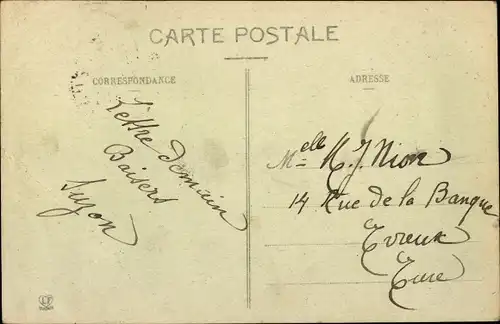 CARTE POSTALE
CORRESPONDANCE
ADRESSE
Lettre demain
Baisers
Suzon
Melle M. J. Nion
14 Rue de la Banque
Evreux
Eure